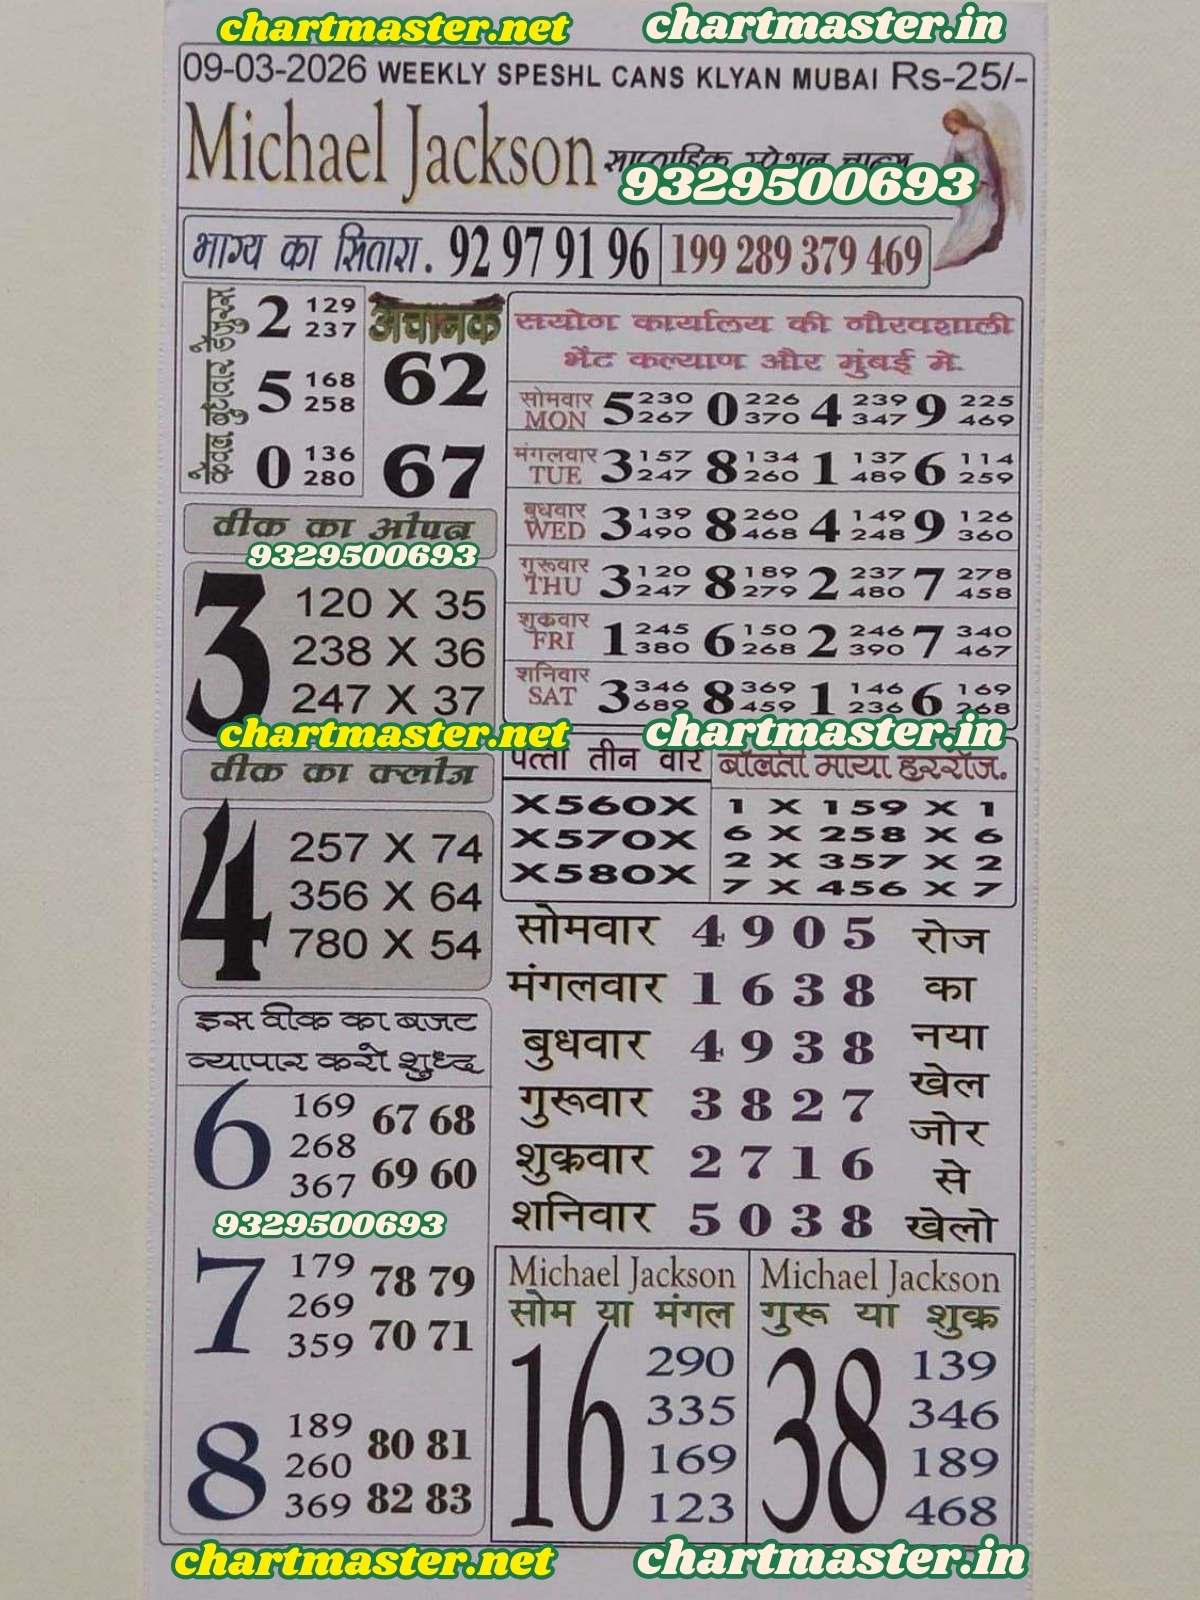 chartmaster.net chartmaster.in
09-03-2026 WEEKLY SPESHL CANS KLYAN MUBAI Rs-25/-
Michael Jackson साप्ताहिक स्पेशल चान्स
9329500693
भाग्य का सितारा. 92 97 91 96 199 289 379 469
केवल बुधवार हैदुरुस्म
2 129
237
5 168
258
0 136
280
अचानक
62
67
सयोग कार्यालय की गौरवशाली
भैट कल्याण और मुंबई मे.
सोमवार MON 5 230 267 0 226 370 4 239 347 9 225 469
मंगलवार TUE 3 157 247 8 134 260 1 137 489 6 114 259
बुधवार WED 3 139 490 8 260 468 4 149 248 9 126 360
गुरूवार THU 3 120 247 8 189 279 2 237 480 7 278 458
शुक्रवार FRI 1 245 380 6 150 268 2 246 390 7 340 467
शनिवार SAT 3 346 689 8 369 459 1 146 236 6 169 268
वीक का ओपन
9329500693
3
120 X 35
238 X 36
247 X 37
chartmaster.net chartmaster.in
वीक का क्लोज
4
257 X 74
356 X 64
780 X 54
पत्ता तीन वार
X560X
X570X
X580X
बोलती माया हररोज.
1 X 159 X 1
6 X 258 X 6
2 X 357 X 2
7 X 456 X 7
सोमवार 4 9 0 5
मंगलवार 1 6 3 8
बुधवार 4 9 3 8
गुरूवार 3 8 2 7
शुक्रवार 2 7 1 6
शनिवार 5 0 3 8
रोज
का
नया
खेल
जोर
से
खेलो
इस वीक का बजट
व्यापार करो शुध्द
6
169
268
367
67 68
69 60
9329500693
7
179
269
359
78 79
70 71
8
189
260
369
80 81
82 83
Michael Jackson
सोम या मंगल
16
290
335
169
123
Michael Jackson
गुरू या शुक्र
38
139
346
189
468
chartmaster.net chartmaster.in